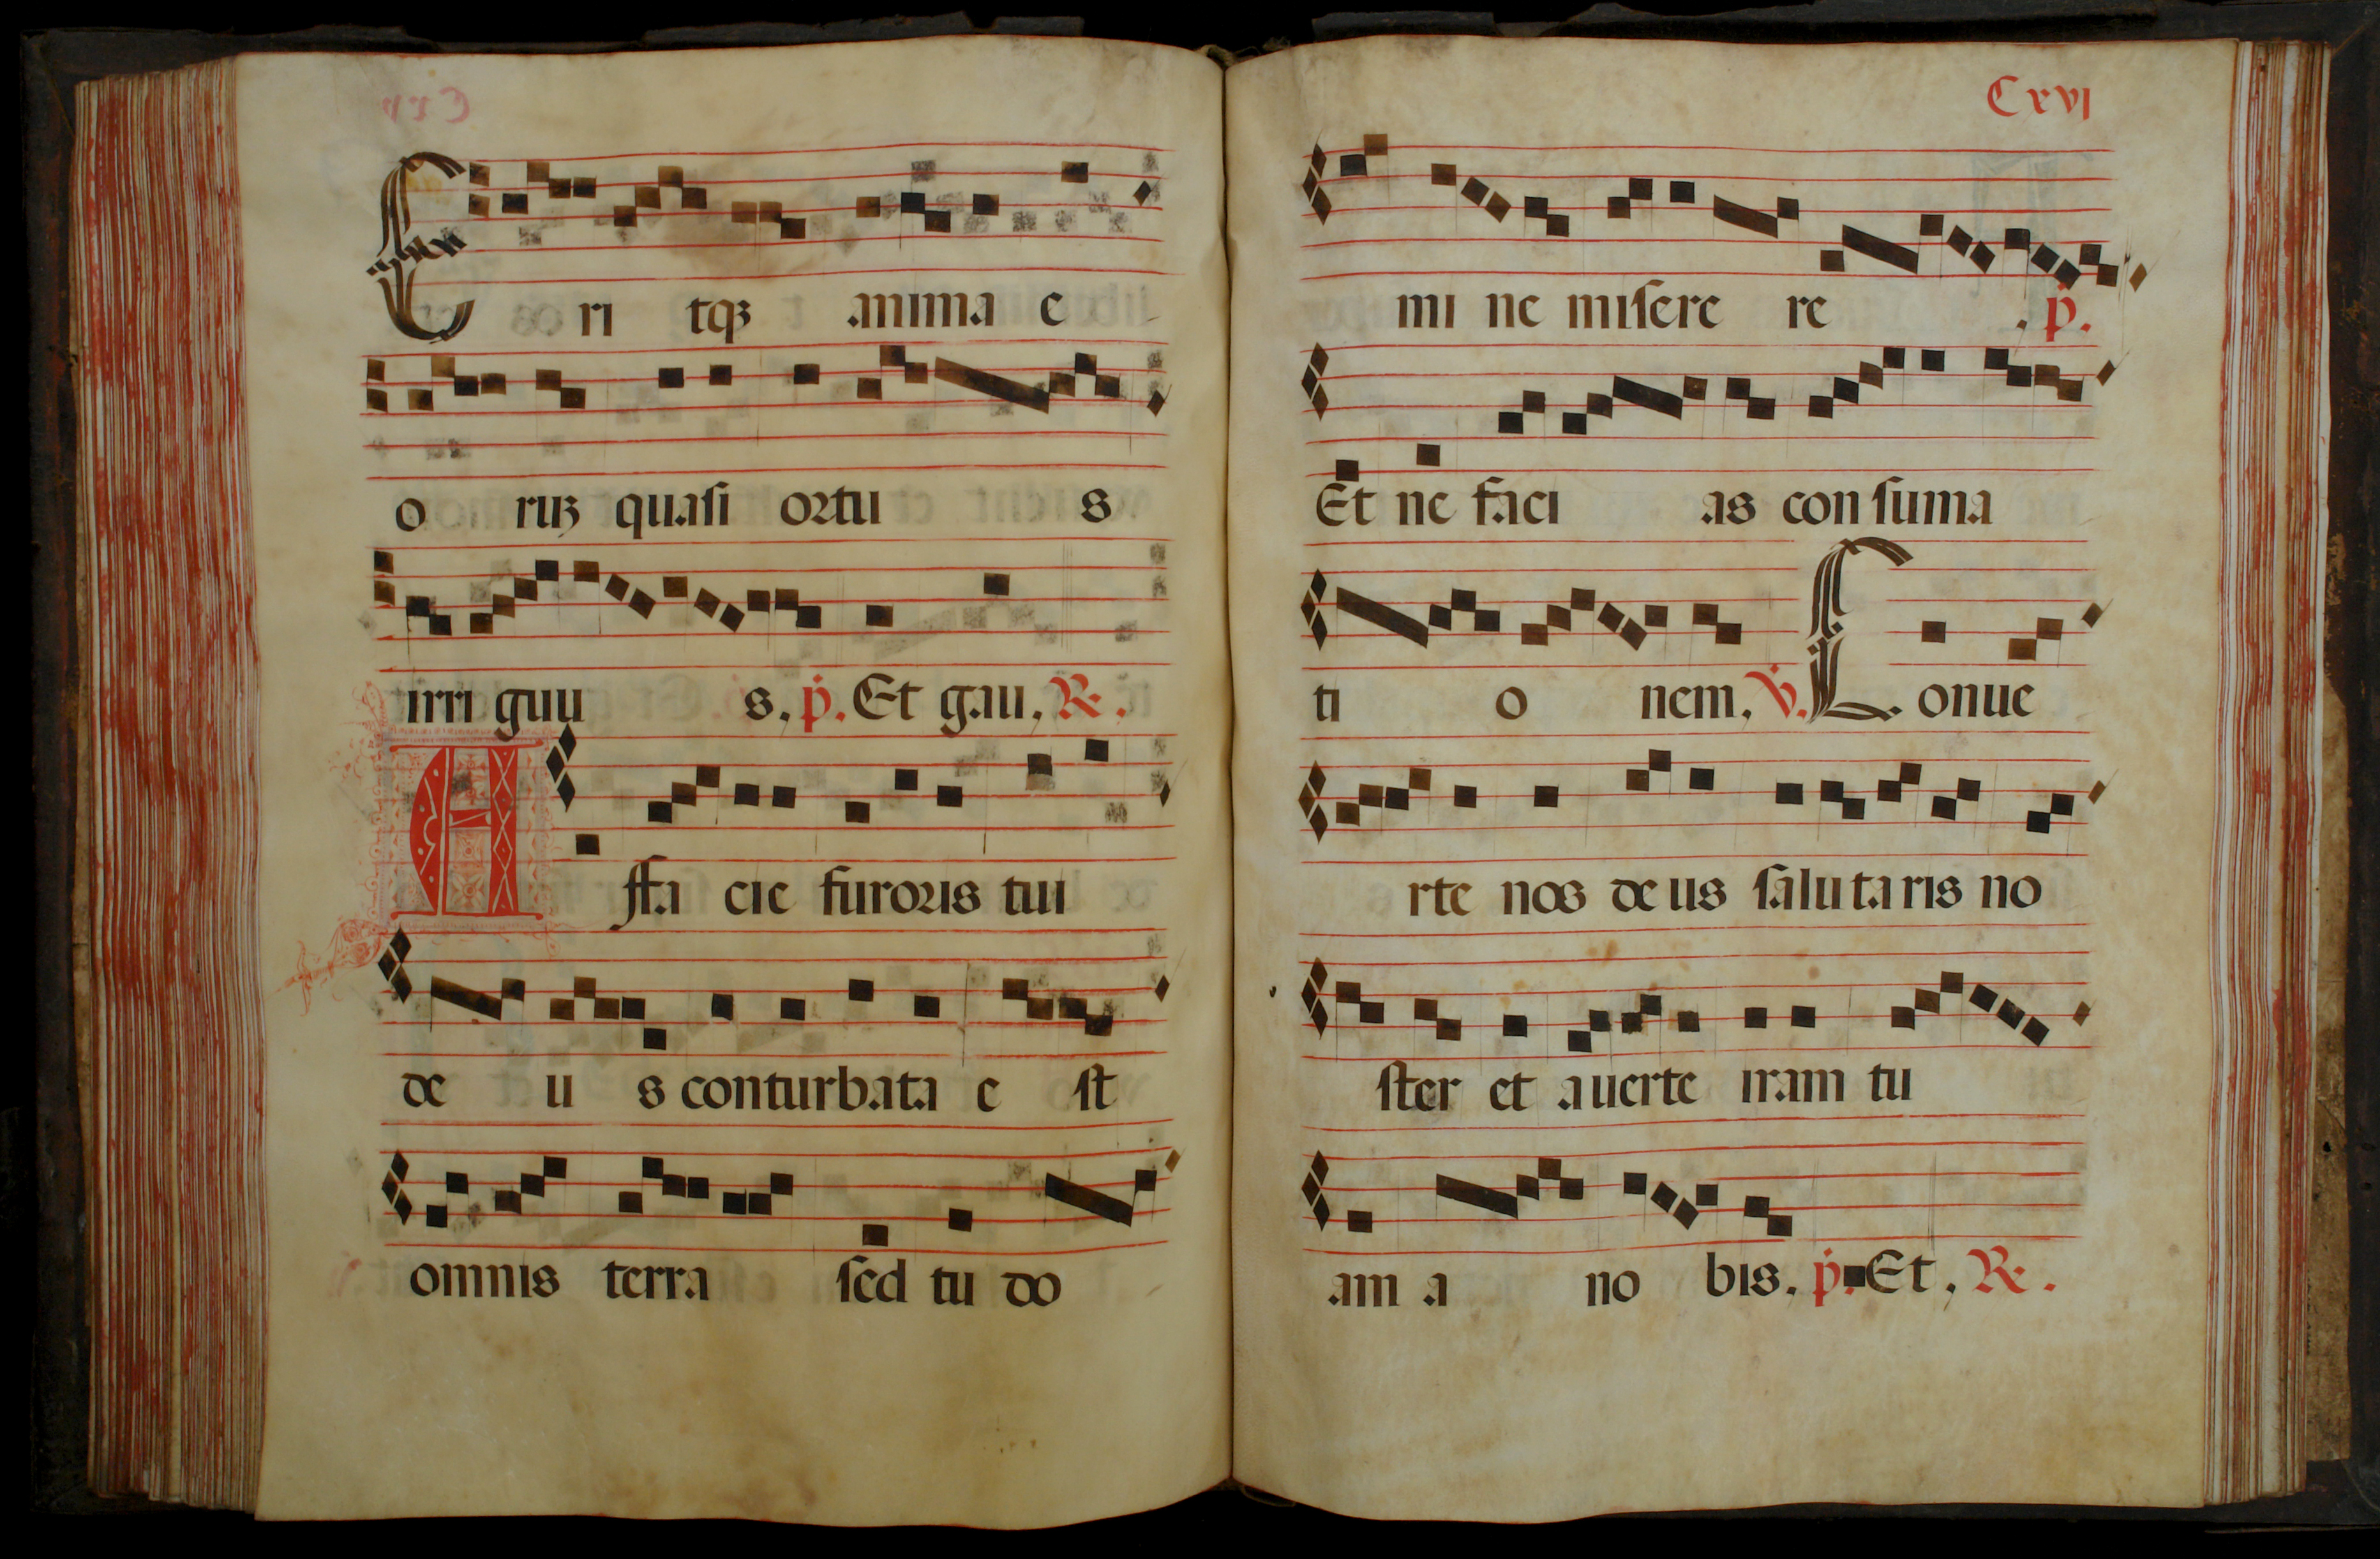 Eri tqꝫ anima e
o ruꝫ quasi ortu s
irri guu s. p. Et gau, R.
A ffa cie furoris tui
de u s conturbata e st
omnis terra sed tu do
Cxvj
mi ne misere re . p.
Et ne faci as con suma
ti o nem, V. Conue
rte nos deus salutaris no
ster et auerte iram tu
am a no bis. p. Et, R.